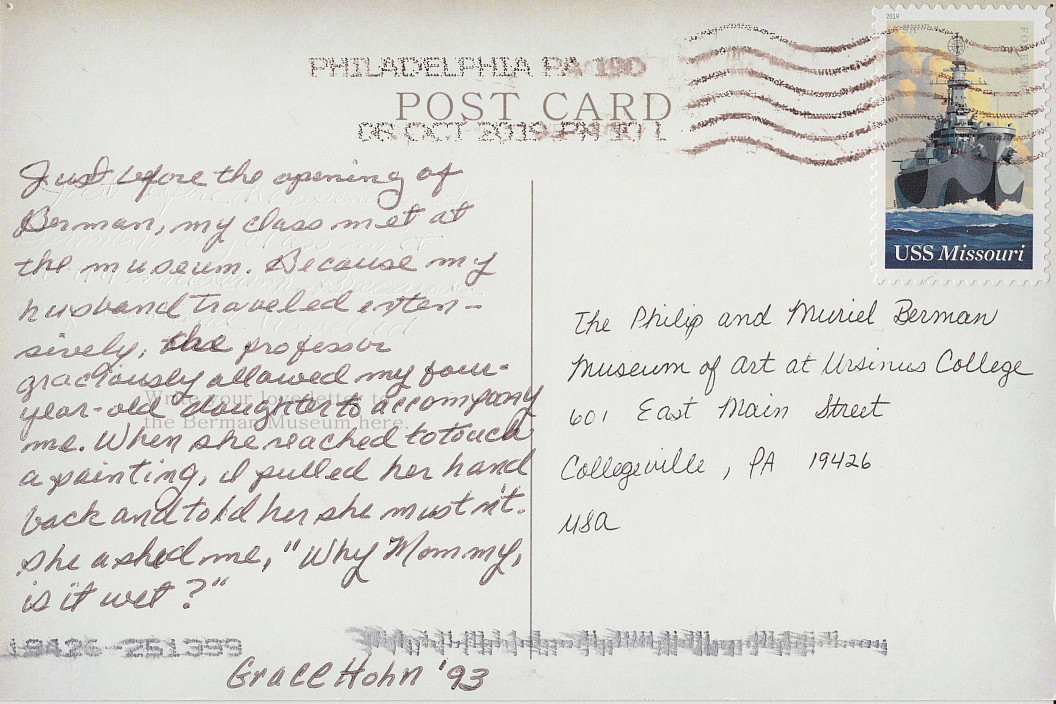 2019
PHILADELPHIA PA 190
POST CARD
08 OCT 2019 PM 10 L
USS Missouri
Just before the opening of
Berman, my class met at
the museum. Because my
husband traveled exten-
sively, the professor
graciously allowed my four-
year-old daughter to accompany
me. When she reached to touch
a painting, I pulled her hand
back and told her she mustn't.
She asked me, "Why Mommy,
is it wet?"
Grace Hohn '93
Write your love letter to
the Berman Museum here.
The Philip and Muriel Berman
Museum of Art at Ursinus College
601 East Main Street
Collegeville, PA 19426
USA
19426-251399